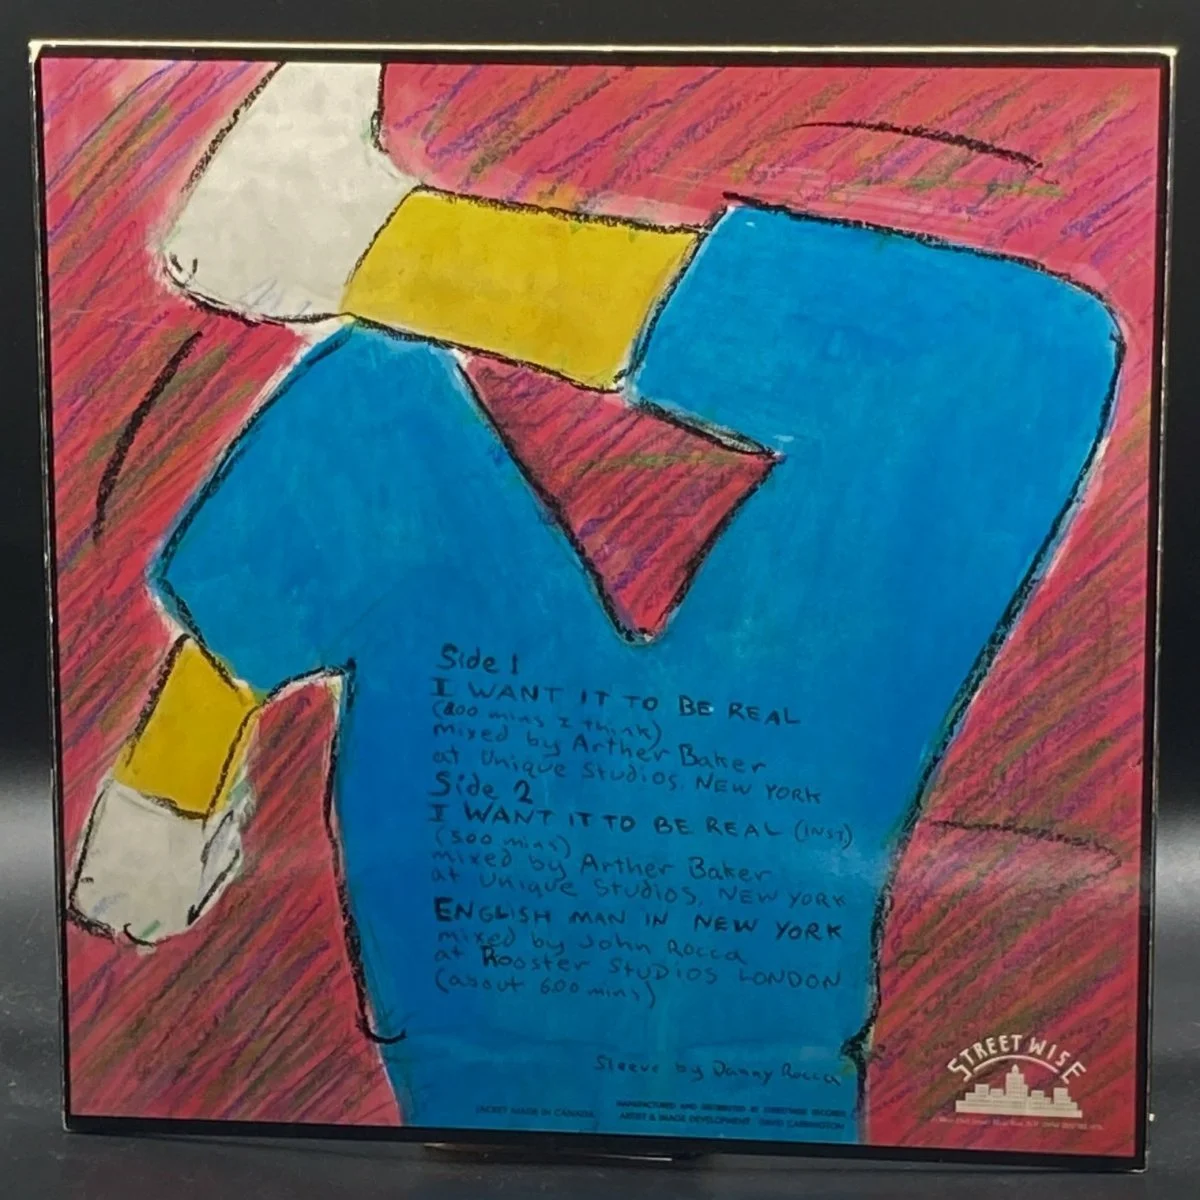 Side 1
I WANT IT TO BE REAL
(800 mins I think)
mixed by Arther Baker
at Unique Studios, NEW YORK
Side 2
I WANT IT TO BE REAL (INST)
(500 mins)
mixed by Arther Baker
at Unique Studios, NEW YORK
ENGLISH MAN IN NEW YORK
mixed by John Rocca
at Rooster STUDIOS LONDON
(about 600 mins)
Sleeve by Danny Rocca
STREETWISE
JACKET MADE IN CANADA
MANUFACTURED AND DISTRIBUTED BY STREETWISE RECORDS
ARTIST & IMAGE DEVELOPMENT DAVID CARRINGTON